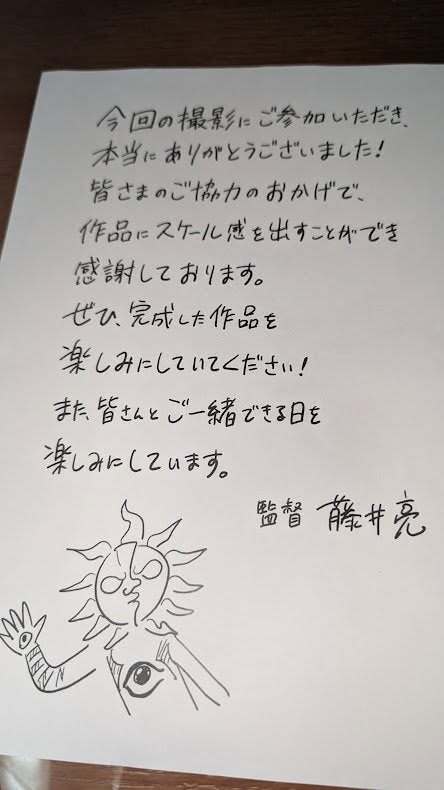 今回の撮影にご参加いただき、
本当にありがとうございました!
皆さまのご協力のおかげで、
作品にスケール感を出すことができ
感謝しております。
ぜひ、完成した作品を
楽しみにしていてください!
また、皆さんとご一緒できる日を
楽しみにしています。
監督 藤井亮